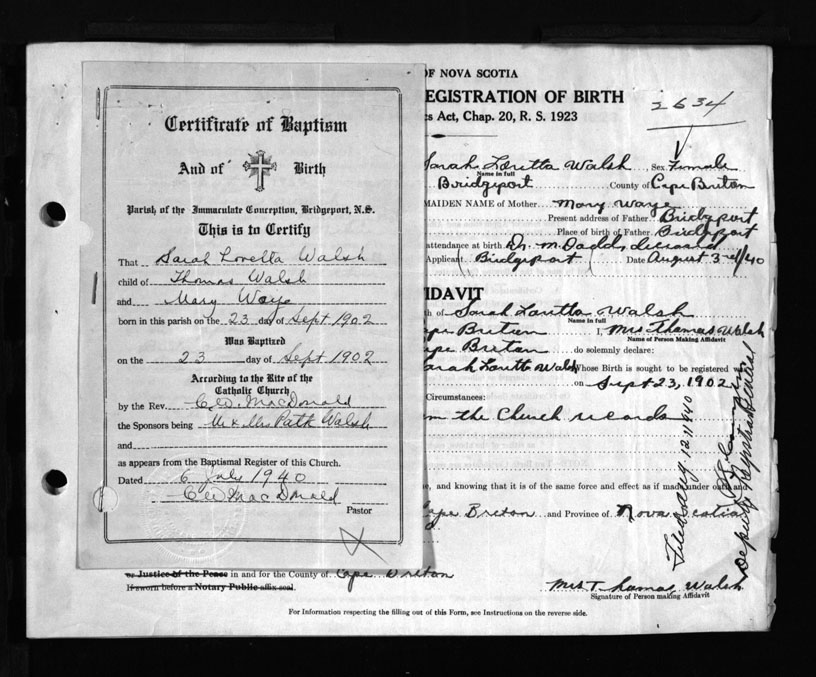 Certificate of Baptism
And of Birth
Parish of the Immaculate Conception, Bridgeport, N.S.
This is to Certify
That Sarah Loretta Walsh
child of Thomas Walsh
and Mary Waye
born in this parish on the 23 day of Sept 1902
Was Baptized
on the 23 day of Sept 1902
According to the Rite of the
Catholic Church
by the Rev. MacDonald
the Sponsors being Mr & Mrs Path Walsh
and
as appears from the Baptismal Register of this Church.
Dated 6 July 1940
MacDonald
Pastor
OF NOVA SCOTIA
EGISTRATION OF BIRTH
cs Act, Chap. 20, R. S. 1923
2634
Sarah Loretta Walsh, Sex Female
Name in full
Bridgeport County of Cape Breton
MAIDEN NAME of Mother Mary Waye
Present address of Father Bridgeport
Place of birth of Father Bridgeport
attendance at birth Dr. deceased
Applicant Bridgeport Date August 3rd/40
FIDAVIT
h of Sarah Loretta Walsh
Name in full
ape Breton I, Mrs Thomas Walsh
Name of Person Making Affidavit
ape Breton do solemnly declare:
arah Loretta Walsh Whose Birth is sought to be registered w
on Sept 23, 1902
Circumstances:
m the Church records
e, and knowing that it is of the same force and effect as if made under oath and
Cape Breton and Province of Nova Scotia
or Justice of the Peace in and for the County of Cape Breton
If sworn before a Notary Public affix seal.
Mrs Thomas Walsh
Signature of Person making Affidavit
For Information respecting the filling out of this Form, see Instructions on the reverse side.
Filed Aug 12 1940
Deputy Registrar General